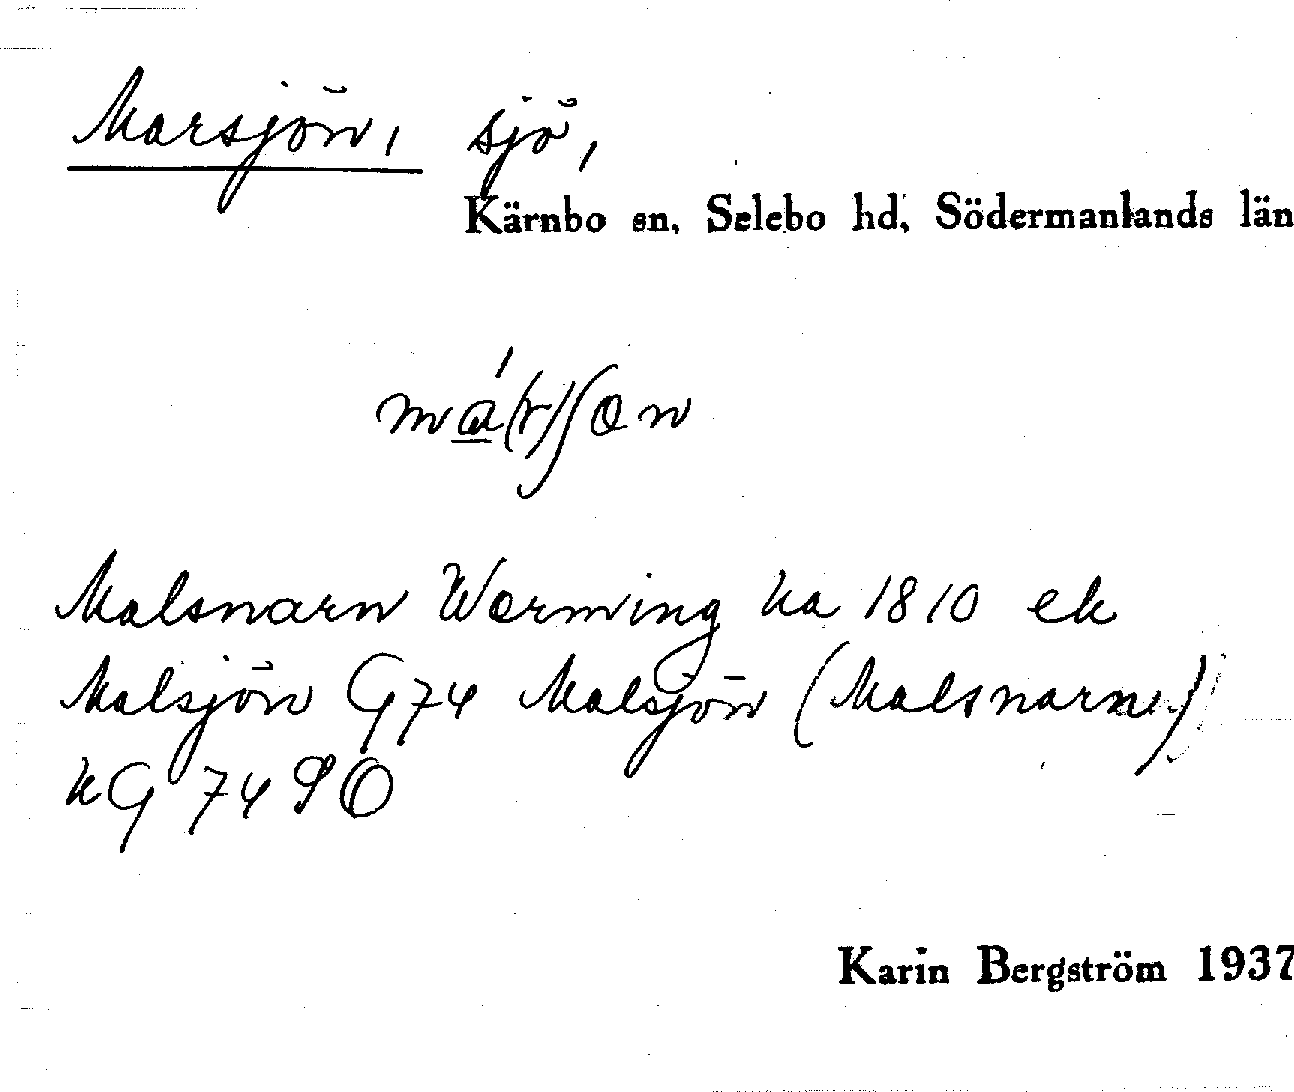 Marsjön, sjö,
Kärnbo sn, Selebo hd, Södermanlands län
má(r)ʃɷn
Malsnarn Werming ka 1810 ek
Malsjön G74 Malsjön (Malsnarn)
kG 74 SO
Karin Bergström 1937